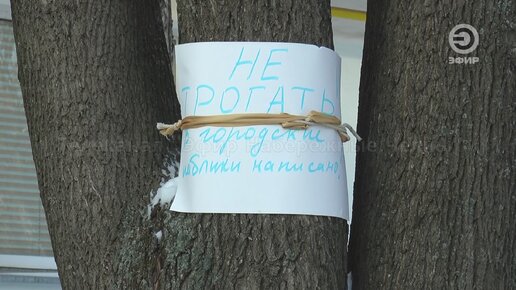 ЭФИР
НЕ
ТРОГАТЬ
городские
написано!